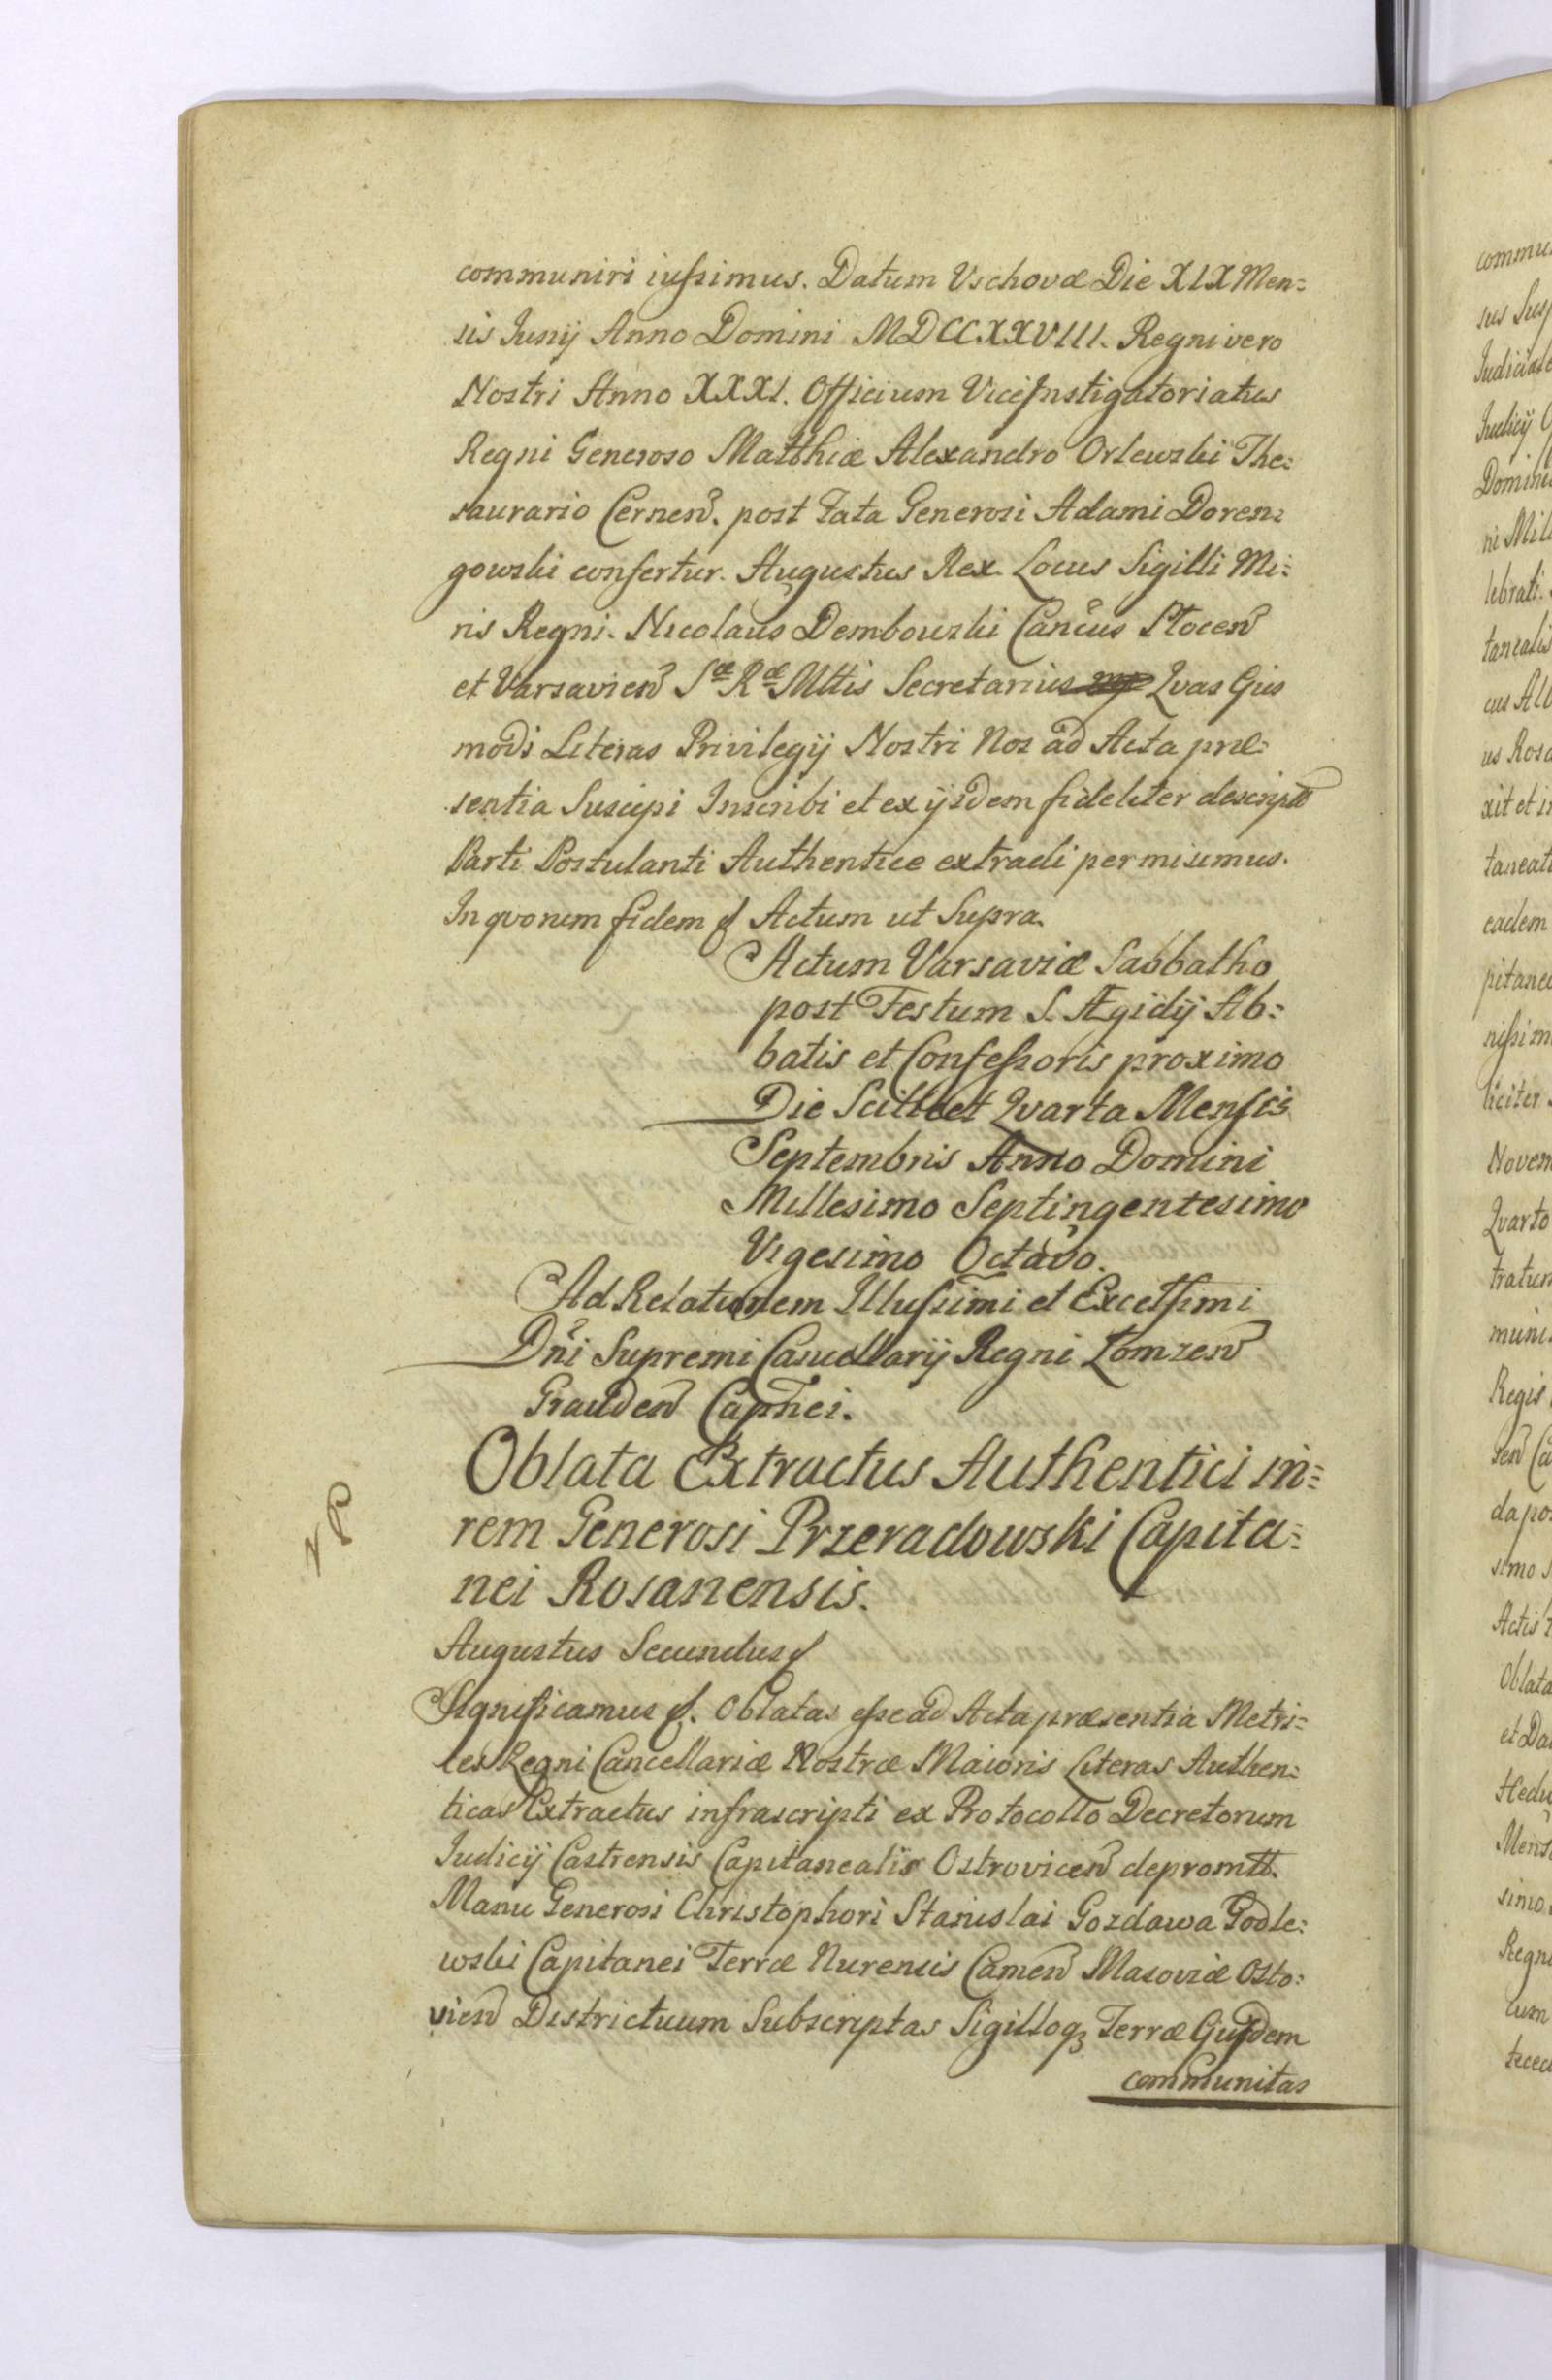 communiri iussimus. Datum Vschovæ Die XIX Men=
sis Junij Anno Domini MDCCXXVIII. Regni vero
Nostri Anno XXXI. Officium ViceInstigatoriatus
Regni Generoso Matthiæ Alexandro Orlewski The=
saurario Cernen. post Fata Generosi Adami Doren=
gowski confertur. Augustus Rex. Locus Sigilli Mi=
ris Regni. Nicolaus Dembowski Cancus Plocen
et Varsavien Sæ Ræ Mttis Secretarius Qvas Ejus
modi Literas Privilegij Nostri Nos ad Acta præ=
sentia Suscipi Inscribi et ex ijsdem fideliter descript
Parti Postulanti Authentice extradi permisimus.
In qvorum fidem Actum ut Supra.
Actum Varsaviæ Sabbatho
post Festum S. Ægidij Ab=
batis et Confessoris proximo
Die Scilicet Qvarta Mensis
Septembris Anno Domini
Millesimo Septingentesimo
Vigesimo Octavo.
Ad Relationem Illussimi et Excellsimi
Dni Supremi Cancellarij Regni Lomzen
Grauden Capnei.
NB
Oblata Extractus Authentici in=
rem Generosi Przeradowski Capita=
nei Rosanensis.
Augustus Secundus
Significamus. Oblatas esse ad Acta præsentia Metri=
ces Regni Cancellariæ Nostræ Maioris Literas Authen=
ticas Extractus infrascripti ex Protocollo Decretorum
Iudicij Castrensis Capitanealis Ostrovicen depromtt.
Manu Generosi Christophori Stanislai Gozdawa Godle=
wski Capitanei Terræ Nurensis Camen Masoviæ Osto=
vien Districtuum Subscriptas Sigilloq Terræ Ejusdem
communitas